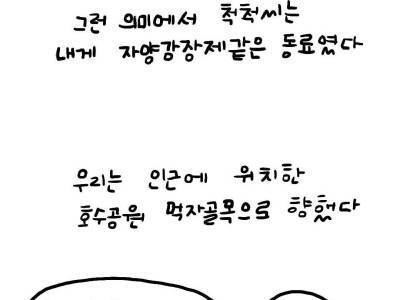 그런 의미에서 척척씨는
내게 자양강장제같은 동료였다
우리는 인근에 위치한
호수공원 먹자골목으로 향했다